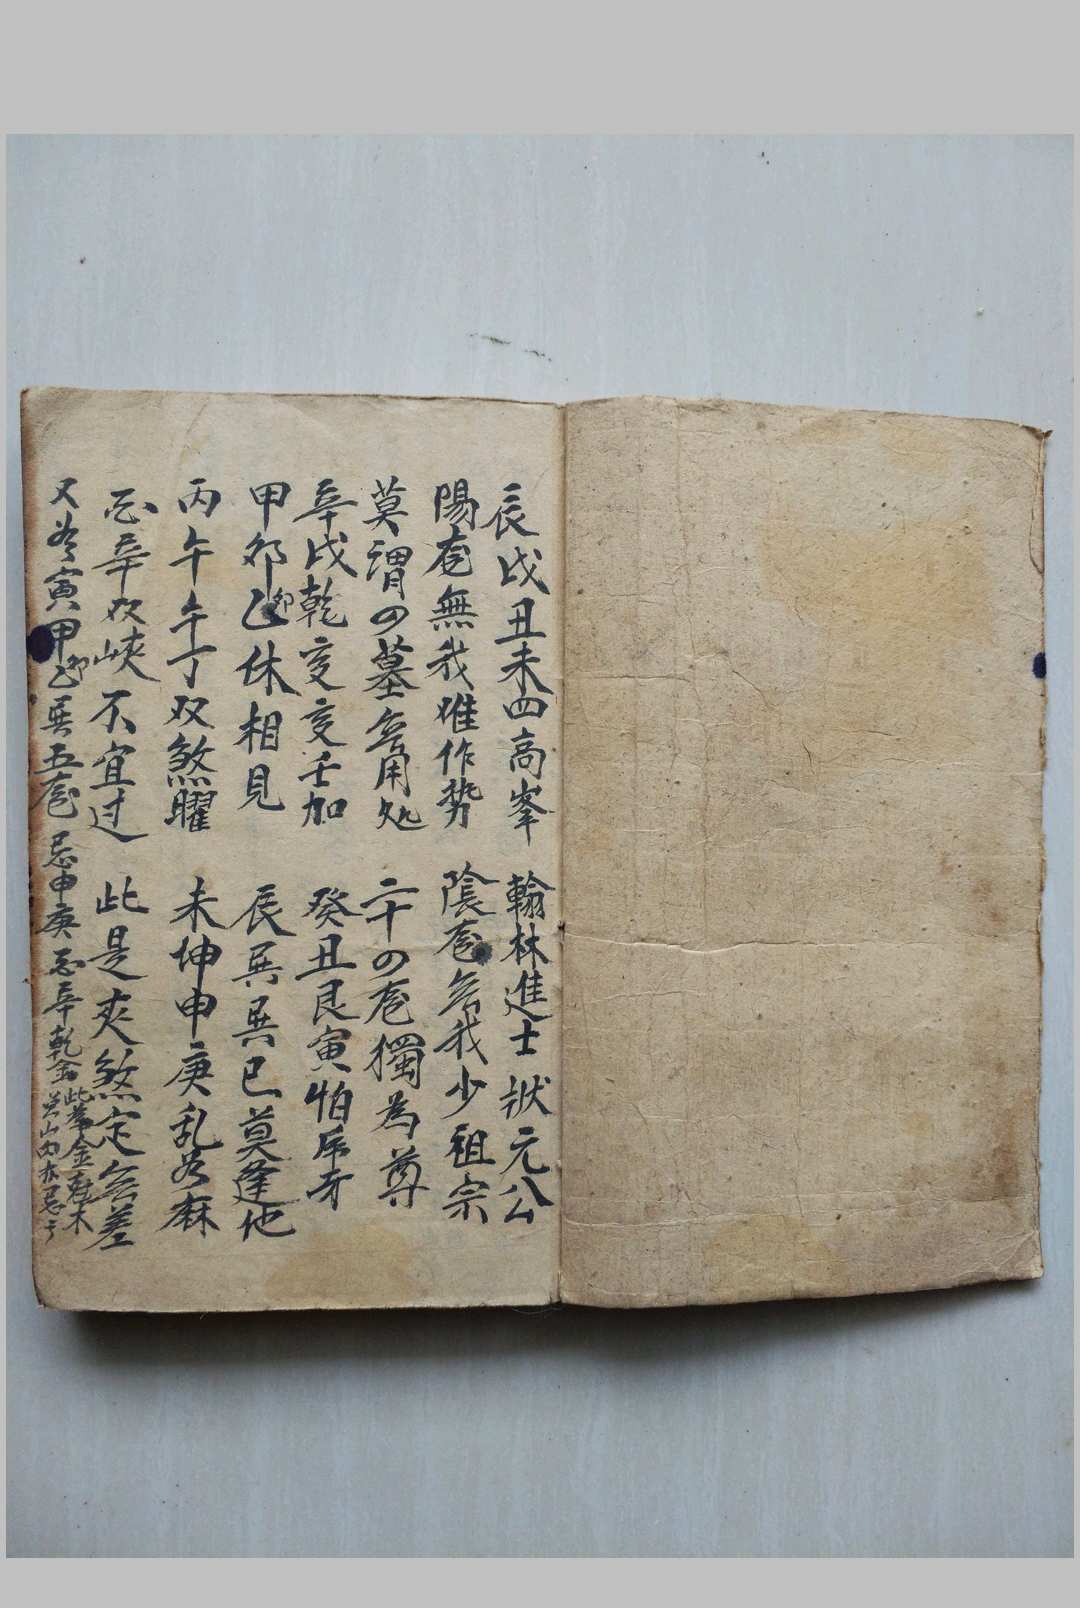 辰戌丑未四高峯　翰林進士狀元公
陽㡳無我难作势　陰㡳無我少祖宗
莫謂四墓無用处　二十四㡳獨為尊
辛戌乾亥亥壬加　癸丑艮寅怕乕牙
甲卯乙卯休相見　辰巽巽巳莫逢他
丙午午丁双煞曜　未坤申庚乱如麻
酉辛双峽不宜过　此是夾煞定無差
又如寅甲卯乙巽五㡳忌申庚酉辛乾金
此為金尅木
立山内亦忌